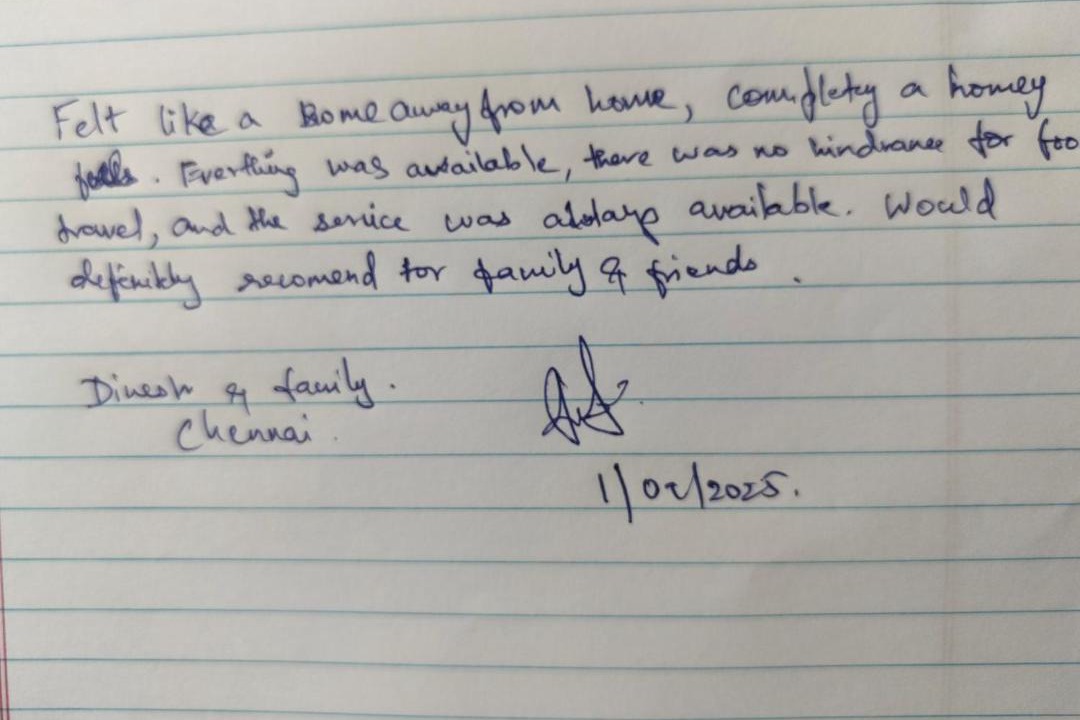 Felt like a Home away from home, completey a homey
feels. Everthing was available, there was no hindrance for foo
travel, and the service was always available. Would
definitely recomend for family & friends.
Dinesh & family.
Chennai.
1/02/2025.